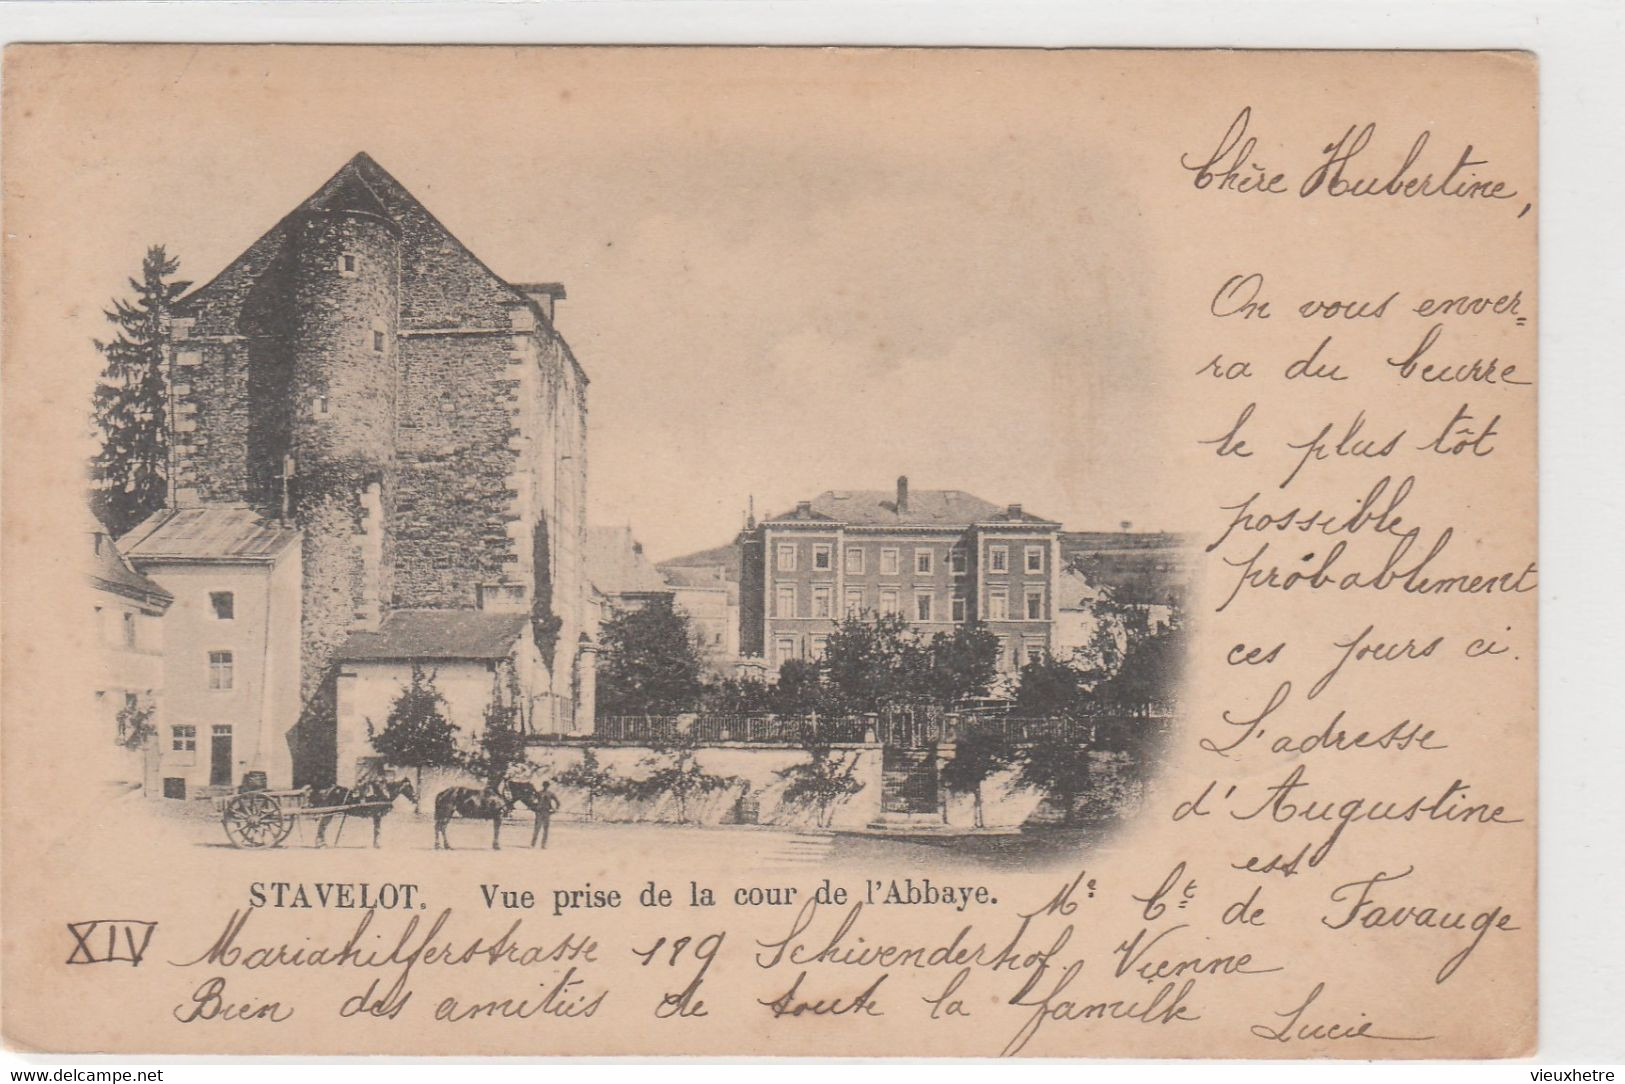 Chère Hubertine,
On vous enver=
ra du beurre
le plus tôt
possible
probablement
ces jours ci.
L'adresse
d'Augustine
est
Me Ct de Favauge
STAVELOT. Vue prise de la cour de l'Abbaye.
XIV
Mariahilferstrasse 189 Schwenderhof Vienne
Bien des amitiés de toute la famille
Lucie
delcampe.net
vieuxhetre